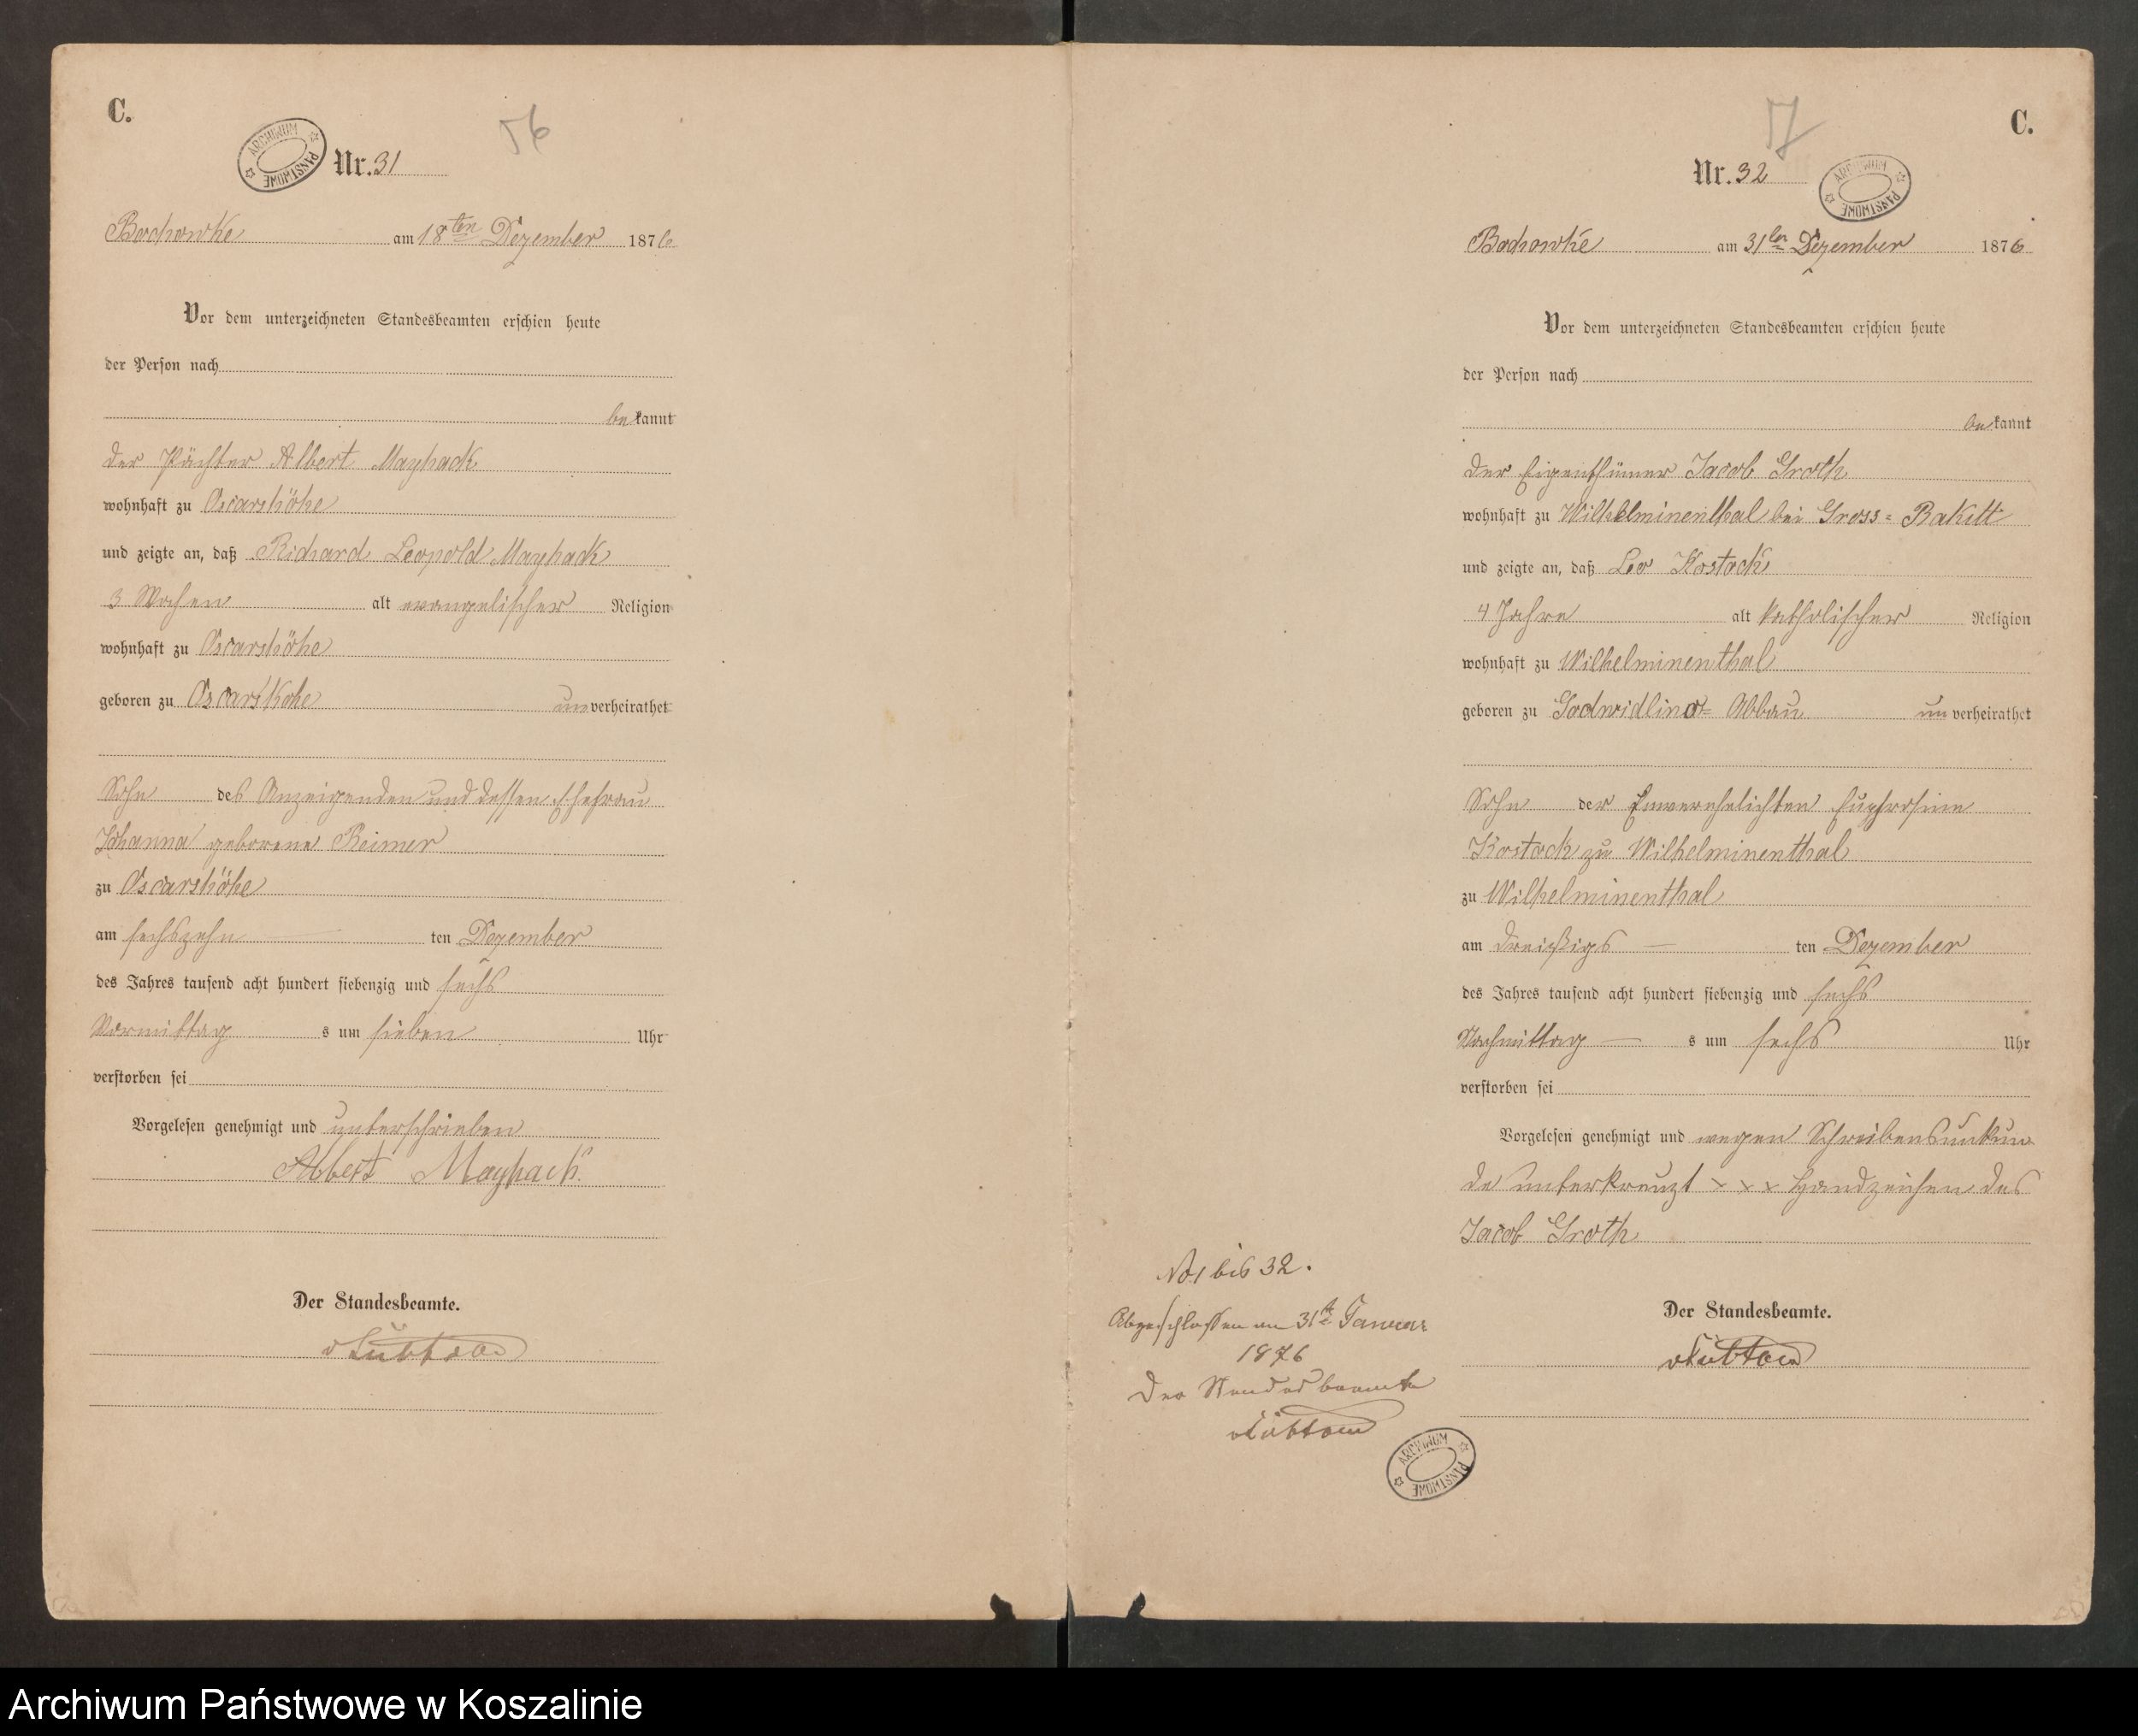 C.
56
ARCHIWUM PAŃSTWOWE
Nr. 31
Bochowke am 18ten Dezember 1876
Vor dem unterzeichneten Standesbeamten erschien heute
der Person nach
bekannt
der Pächter Albert Mayhack
wohnhaft zu Oscarshöhe
und zeigte an, daß Richard Leopold Mayhack
3 Wochen alt evangelischer Religion
wohnhaft zu Oscarshöhe
geboren zu Oscarshöhe unverheirathet
Sohn des Anzeigenden und dessen Ehefrau
Johanna geborene Reimer
zu Oscarshöhe
am sechszehn ten Dezember
des Jahres tausend acht hundert siebenzig und sechs
Vormittag s um sieben Uhr
verstorben sei
Vorgelesen genehmigt und unterschrieben
Albert Mayhack.
Der Standesbeamte.
57
C.
Nr. 32
ARCHIWUM PAŃSTWOWE
Bochowke am 31ten Dezember 1876
Vor dem unterzeichneten Standesbeamten erschien heute
der Person nach
bekannt
der Eigenthümer Jacob Groth
wohnhaft zu Wilhelminenthal bei Gross-Rakitt
und zeigte an, daß Leo Kostock
4 Jahre alt katholischer Religion
wohnhaft zu Wilhelminenthal
geboren zu Abbau unverheirathet
Sohn der Unverehelichten Euphrosine
Kostock zu Wilhelminenthal
zu Wilhelminenthal
am dreißigs ten Dezember
des Jahres tausend acht hundert siebenzig und sechs
Nachmittag s um sechs Uhr
verstorben sei
Vorgelesen genehmigt und wegen Schreibensunkun
de unterkreuzt x x x Handzeichen des
Jacob Groth
Der Standesbeamte.
No 1 bis 32.
Abgeschlossen am 31ten Januar
1876
Der Standesbeamte
ARCHIWUM PAŃSTWOWE
Archiwum Państwowe w Koszalinie